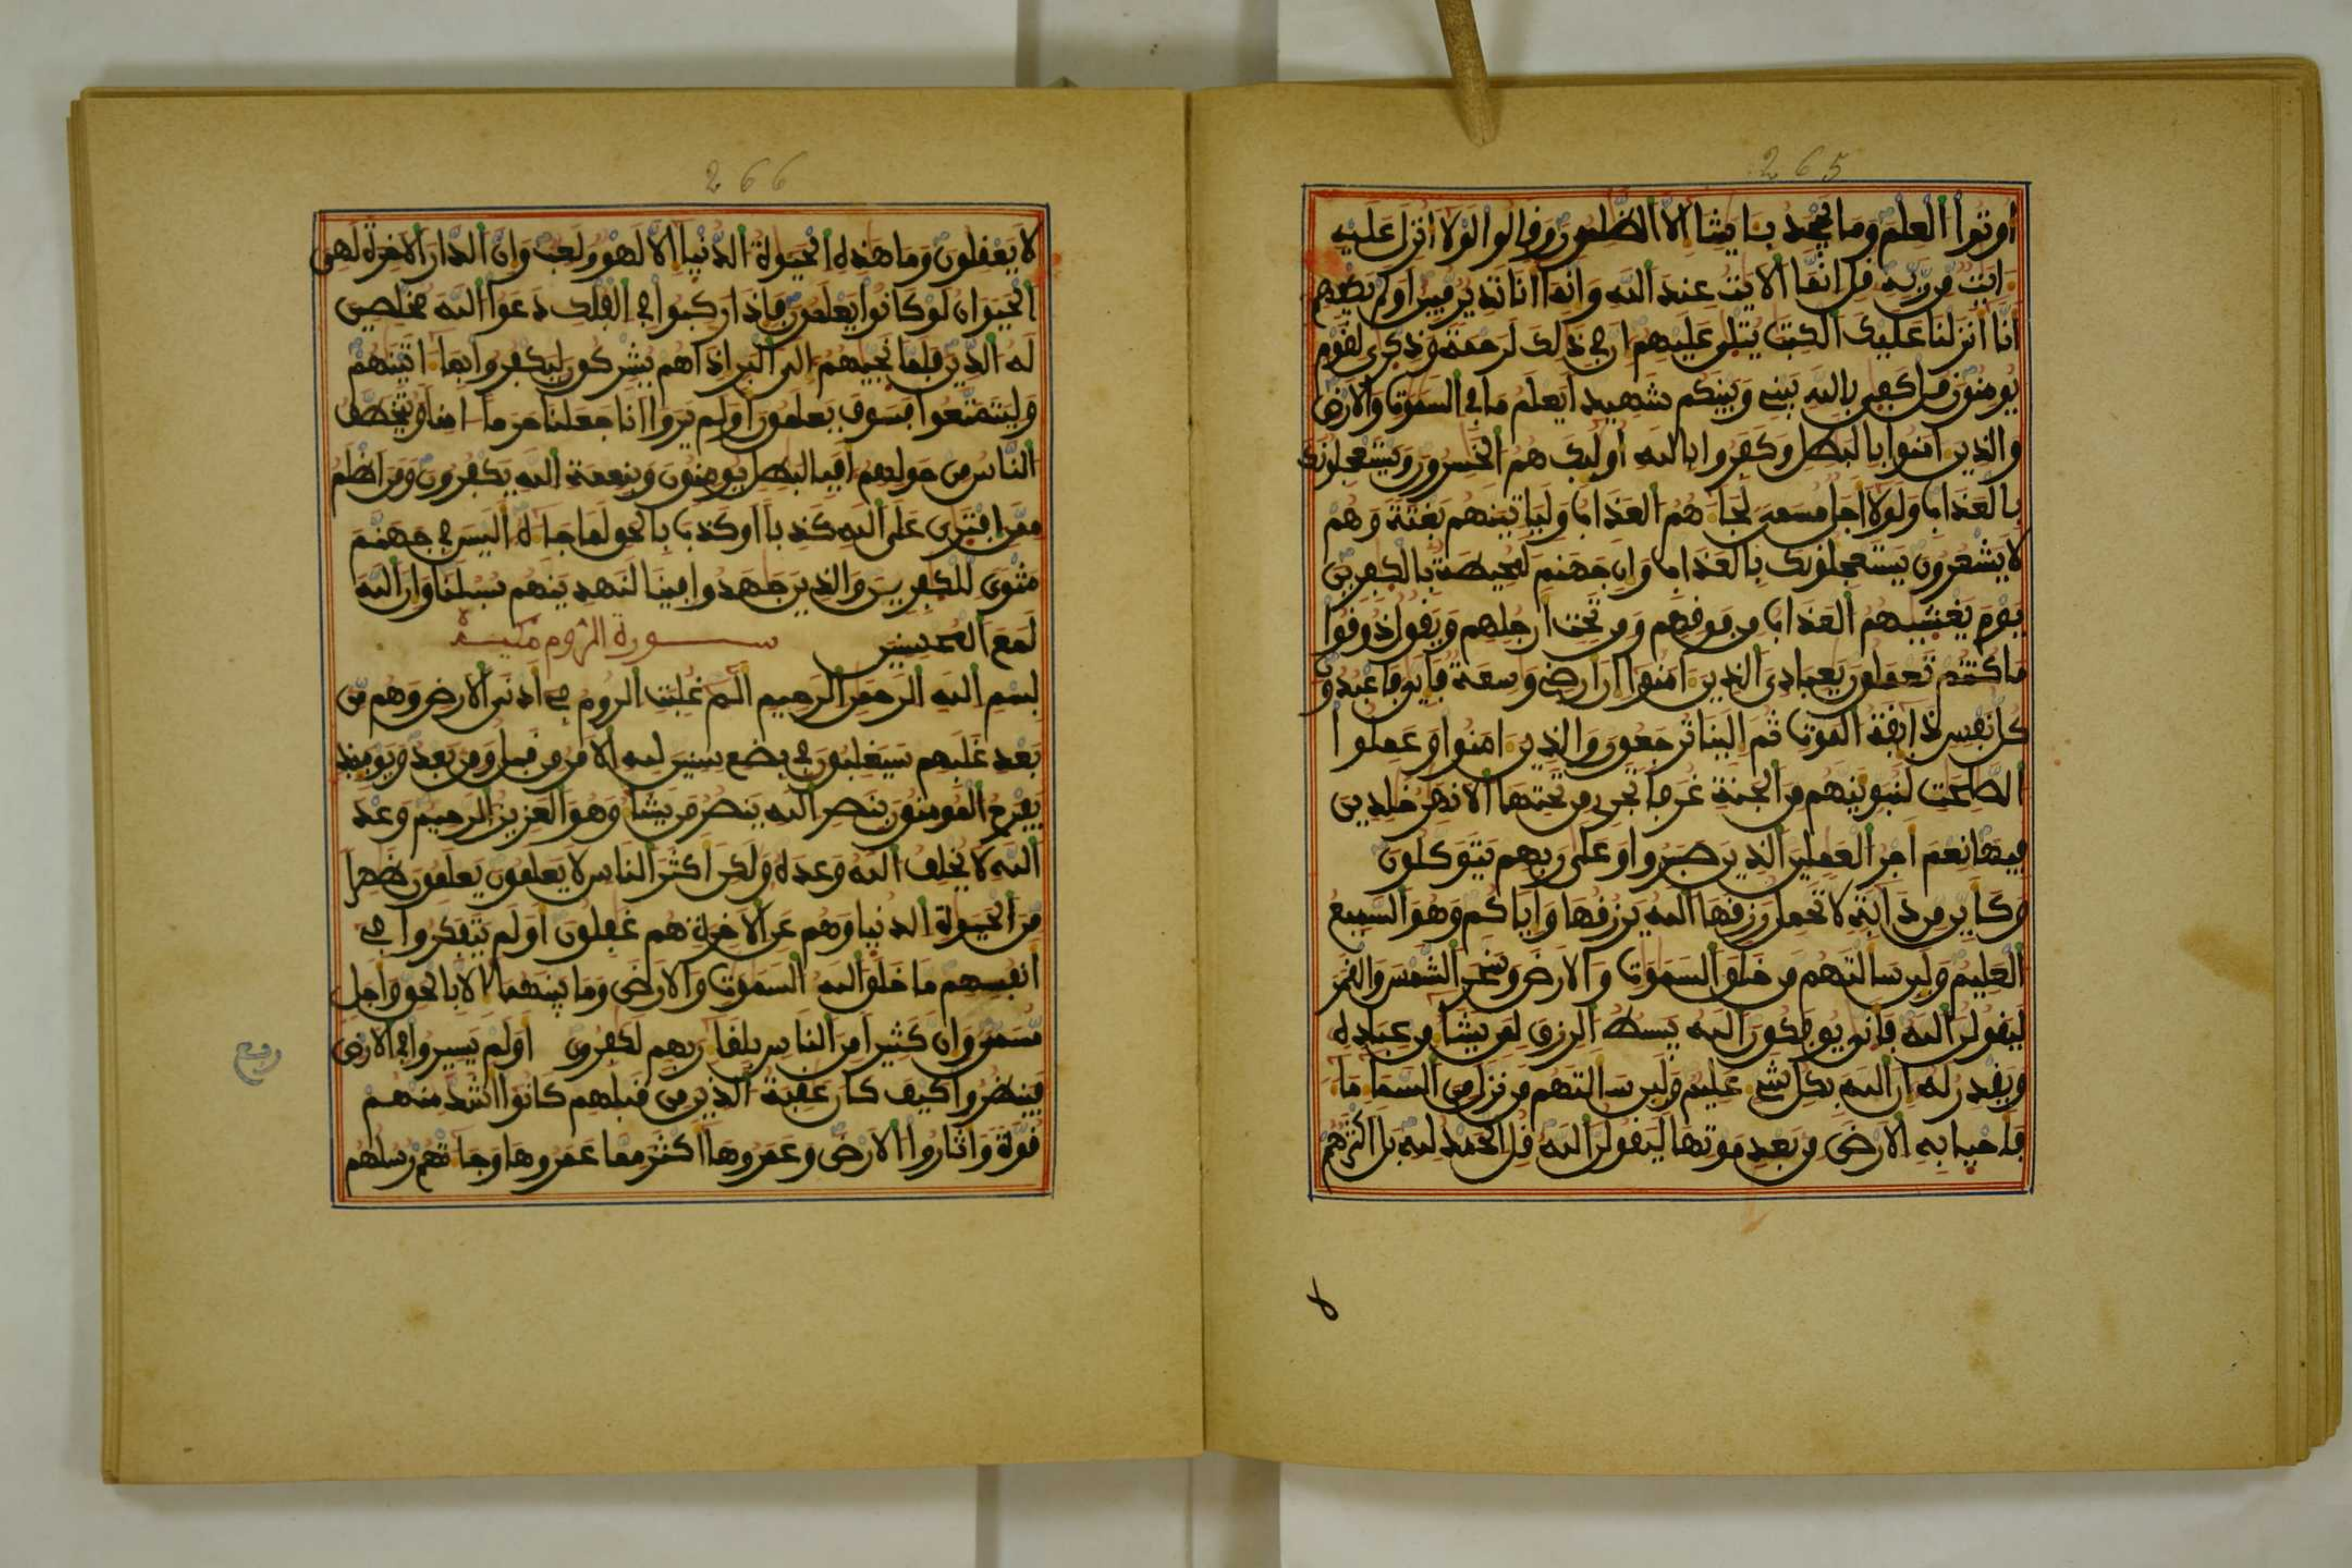 265
أوتوا العلم وما يجحد بـايتنا إلا الظلمون وقالوا لولا أنزل عليه
ءايت من ربه قل إنما الايت عند الله وإنما أنا نذير مبين أولم يكفهم
أنا أنزلنا عليك الكتب يتلى عليهم إن في ذلك لرحمة وذكرى لقوم
يومنون قل كفى بالله بيني وبينكم شهيدا يعلم ما في السموت والارض
والذين ءامنوا بالبطل وكفروا بالله أوليك هم الخسرون ويستعجلونك
بالعذاب ولولا أجل مسمى لجاءهم العذاب ولياتينهم بغتة وهم
لا يشعرون يستعجلونك بالعذاب وإن جهنم لمحيطة بالكفرين
يوم يغشيهم العذاب من فوقهم ومن تحت أرجلهم ويقول ذوقوا
ما كنتم تعملون يعبادي الذين ءامنوا إن أرضي وسعة فإيي فاعبدون
كل نفس ذايقة الموت ثم إلينا ترجعون والذين ءامنوا وعملوا
الصلحت لنبوينهم من الجنة غرفا تجري من تحتها الانهر خلدين
فيها نعم أجر العملين الذين صبروا وعلى ربهم يتوكلون
وكأين من دابة لا تحمل رزقها الله يرزقها وإياكم وهو السميع
العليم ولين سالتهم من خلق السموت والارض وسخر الشمس والقمر
ليقولن الله فأنى يوفكون الله يبسط الرزق لمن يشاء من عباده
ويقدر له إن الله بكل شيء عليم ولين سالتهم من نزل من السماء ماء
فأحيا به الارض من بعد موتها ليقولن الله قل الحمد لله بل أكثرهم
لا
266
لا يعقلون وما هذه الحيوة الدنيا إلا لهو ولعب وإن الدار الاخرة لهي
الحيوان لو كانوا يعلمون فإذا ركبوا في الفلك دعوا الله مخلصين
له الدين فلما نجيهم إلى البر إذا هم يشركون ليكفروا بما ءاتينهم
وليتمتعوا فسوف يعلمون أولم يروا أنا جعلنا حرما ءامنا ويتخطف
الناس من حولهم أفبالبطل يومنون وبنعمة الله يكفرون ومن أظلم
ممن افترى على الله كذبا أو كذب بالحق لما جاءه أليس في جهنم
مثوى للكفرين والذين جهدوا فينا لنهدينهم سبلنا وإن الله
لمع المحسنين سورة الروم مكية
بسم الله الرحمن الرحيم ألم غلبت الروم في أدنى الارض وهم من
بعد غلبهم سيغلبون في بضع سنين لله الامر من قبل ومن بعد ويوميذ
يفرح المومنون بنصر الله ينصر من يشاء وهو العزيز الرحيم وعد
الله لا يخلف الله وعده ولكن أكثر الناس لا يعلمون يعلمون ظهرا
من الحيوة الدنيا وهم عن الاخرة هم غفلون أولم يتفكروا في
أنفسهم ما خلق الله السموت والارض وما بينهما إلا بالحق وأجل
مسمى وإن كثيرا من الناس بلقاء ربهم لكفرون أولم يسيروا في الارض
ربع
فينظروا كيف كان عقبة الذين من قبلهم كانوا أشد منهم
قوة وأثاروا الارض وعمروها أكثر مما عمروها وجاءتهم رسلهم